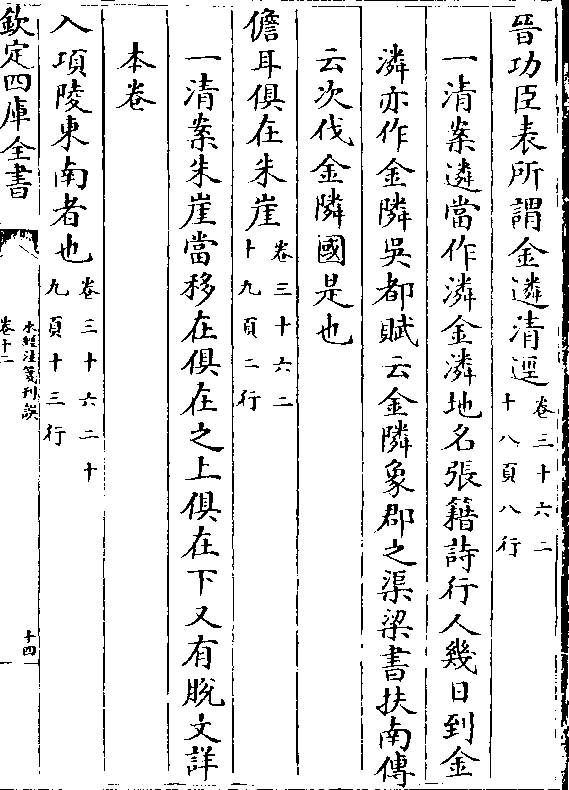 晉功臣表所謂金遴清逕卷三十六二十八頁八行
一清案遴當作潾金潾地名張籍詩行人幾日到金
潾亦作金隣吳都賦云金隣象郡之渠梁書扶南傳
云次伐金隣國是也
儋耳俱在朱崖卷三十六二十九頁二行
一清案朱崖當移在俱在之上俱在下又有脫文詳
本卷
入項陵東南者也卷三十六二十九頁十三行
欽定四庫全書
水經注箋刊誤
卷十二
十四